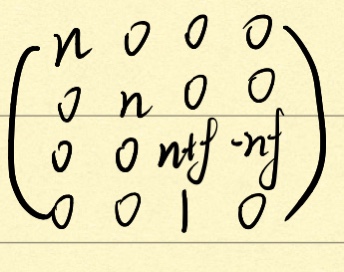 n 0 0 0
0 n 0 0
0 0 n+f -nf
0 0 1 0